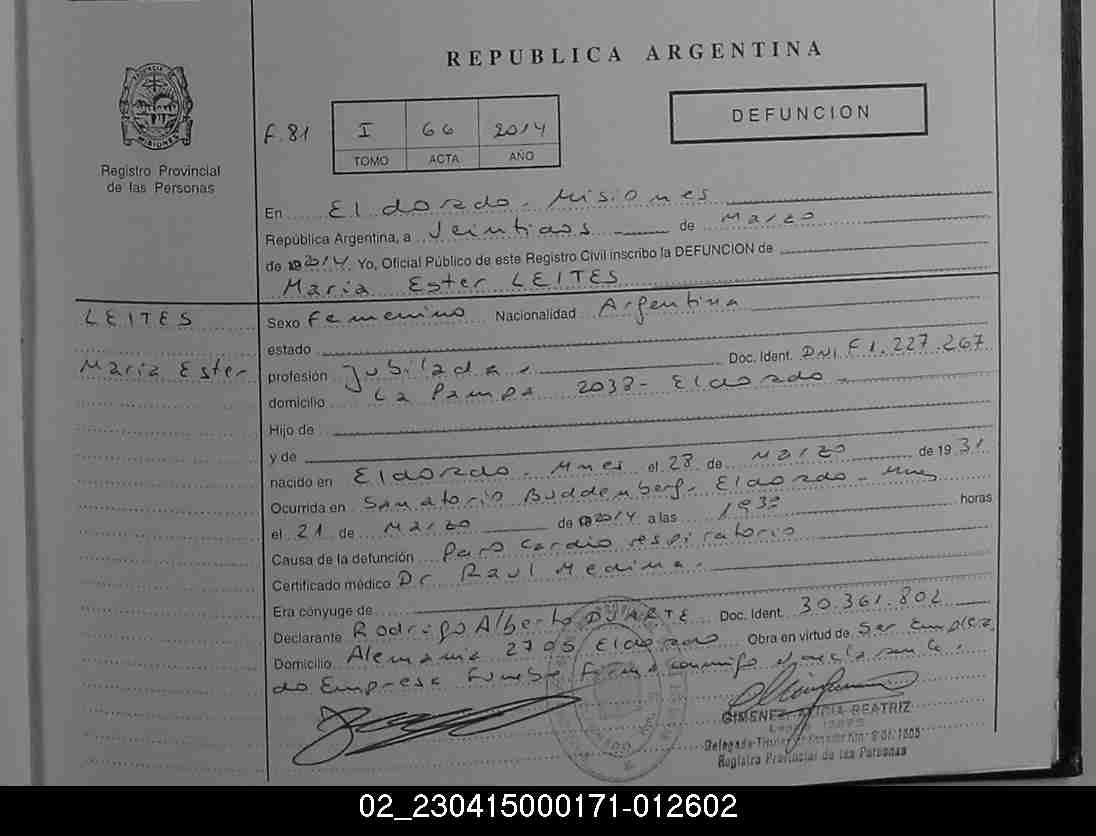 REPUBLICA ARGENTINA
PROVINCIA DE
MISIONES
Registro Provincial
de las Personas
F. 81
I 66 2014
TOMO ACTA AÑO
DEFUNCION
En Eldorado - Misiones
República Argentina, a Veintidos de Marzo
de 2014 Yo, Oficial Público de este Registro Civil inscribo la DEFUNCION de
Maria Ester LEITES
LEITES
Maria Ester
Sexo Femenino Nacionalidad Argentina
estado
profesión Jubilada. Doc. Ident. DNI F 1.227.267
domicilio La Pampa 2038 - Eldorado.
Hijo de
y de
nacido en Eldorado - Mnes el 28 de Marzo de 1931
Ocurrida en Sanatorio Buddemberg - Eldorado - Mnes
el 21 de Marzo de 2014 a las 19 30 horas
Causa de la defunción Paro Cardio respiratorio
Certificado médico Dr Raul Medina.
Era cónyuge de
Declarante Rodrigo Alberto DUARTE Doc. Ident. 30.361.802
Domicilio Alemania 2705 Eldorado Obra en virtud de Ser Emplea
do Empresa Funebre Firma conmigo
GIMENEZ BEATRIZ
Delegada Titular
Registro Provincial de las Personas
02_230415000171-012602